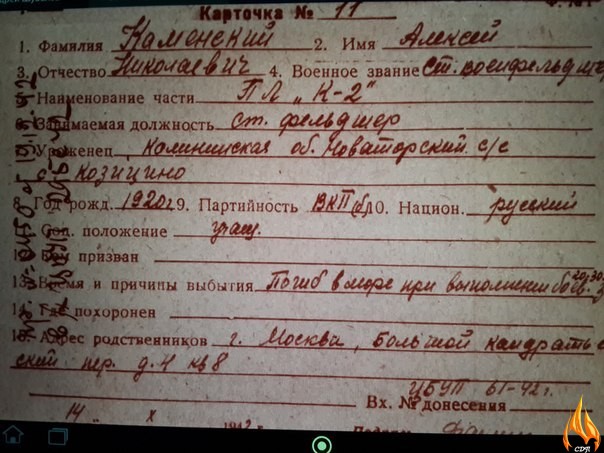 Карточка № 11
1. Фамилия Каменский 2. Имя Алексей
3. Отчество Николаевич 4. Военное звание Ст. военфельдшер
Наименование части ПЛ „К-2"
Занимаемая должность ст. фельдшер
Уроженец Калининская об. Новоторский с/с
с. Козицино
Год рожд. 1920г. 9. Партийность ВКП(б) 10. Национ. русский
Соц. положение учащ.
призван
13. Время и причины выбытия Погиб в море при выполнении боев.
14. Где похоронен
15. Адрес родственников г. Москва, Большой кондратьев
ский пер. д. 4 кв 8
ЦБУП 61-42 г.
Вх. № донесения
14 X 1942 г.
CDR